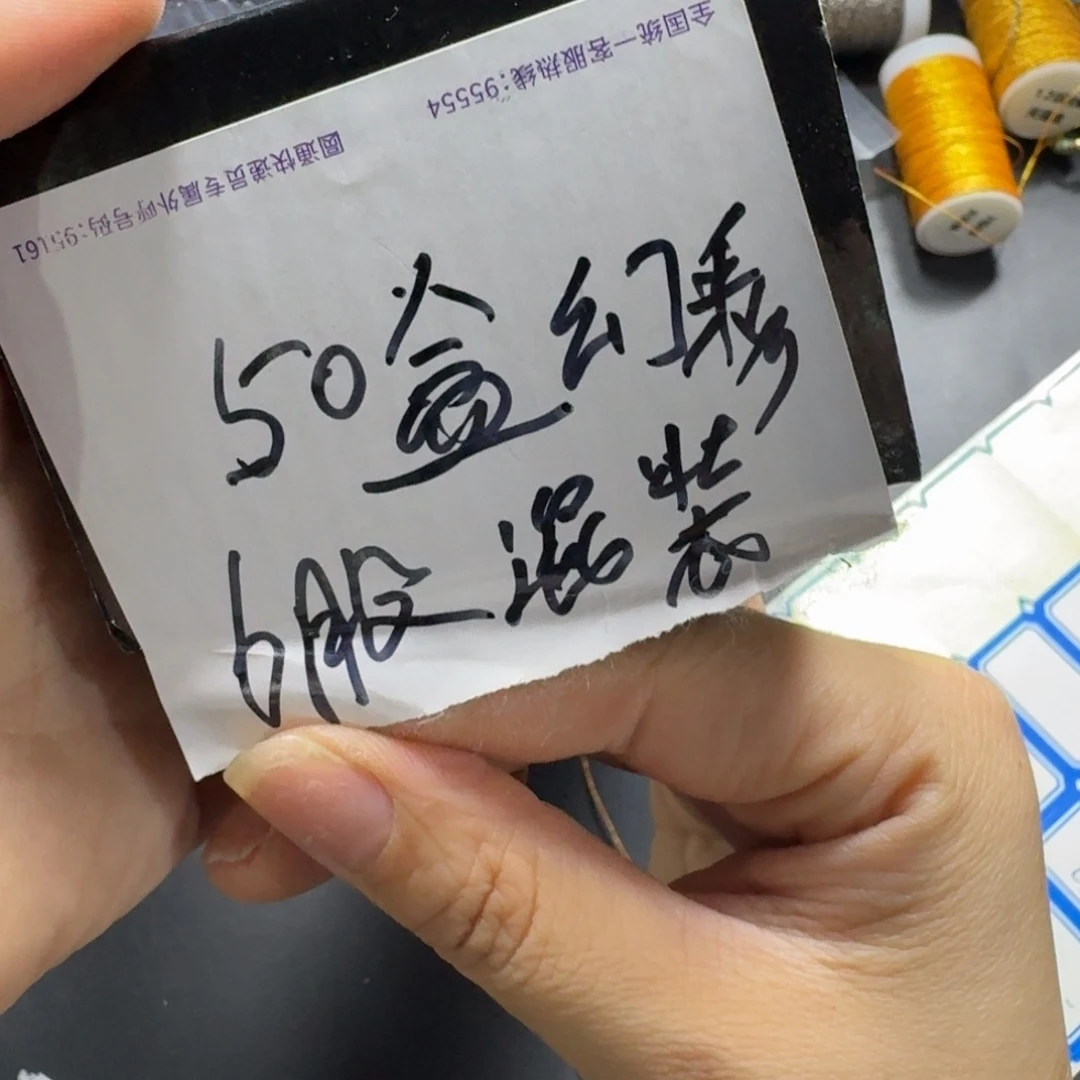 全国统一客服热线:95554
圆通快递员专属外呼号码:95161
50盒幻彩
6股混装